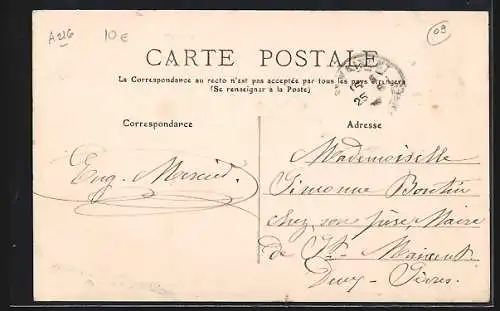 A216
10 €
09
CARTE POSTALE
La Correspondance au recto n'est pas acceptée par tous les pays étrangers
(Se renseigner à la Poste)
Correspondance
Adresse
Eug.
Mademoiselle
Simonne
chez son père, Maire
de St-Maixent
Deux-Sèvres.